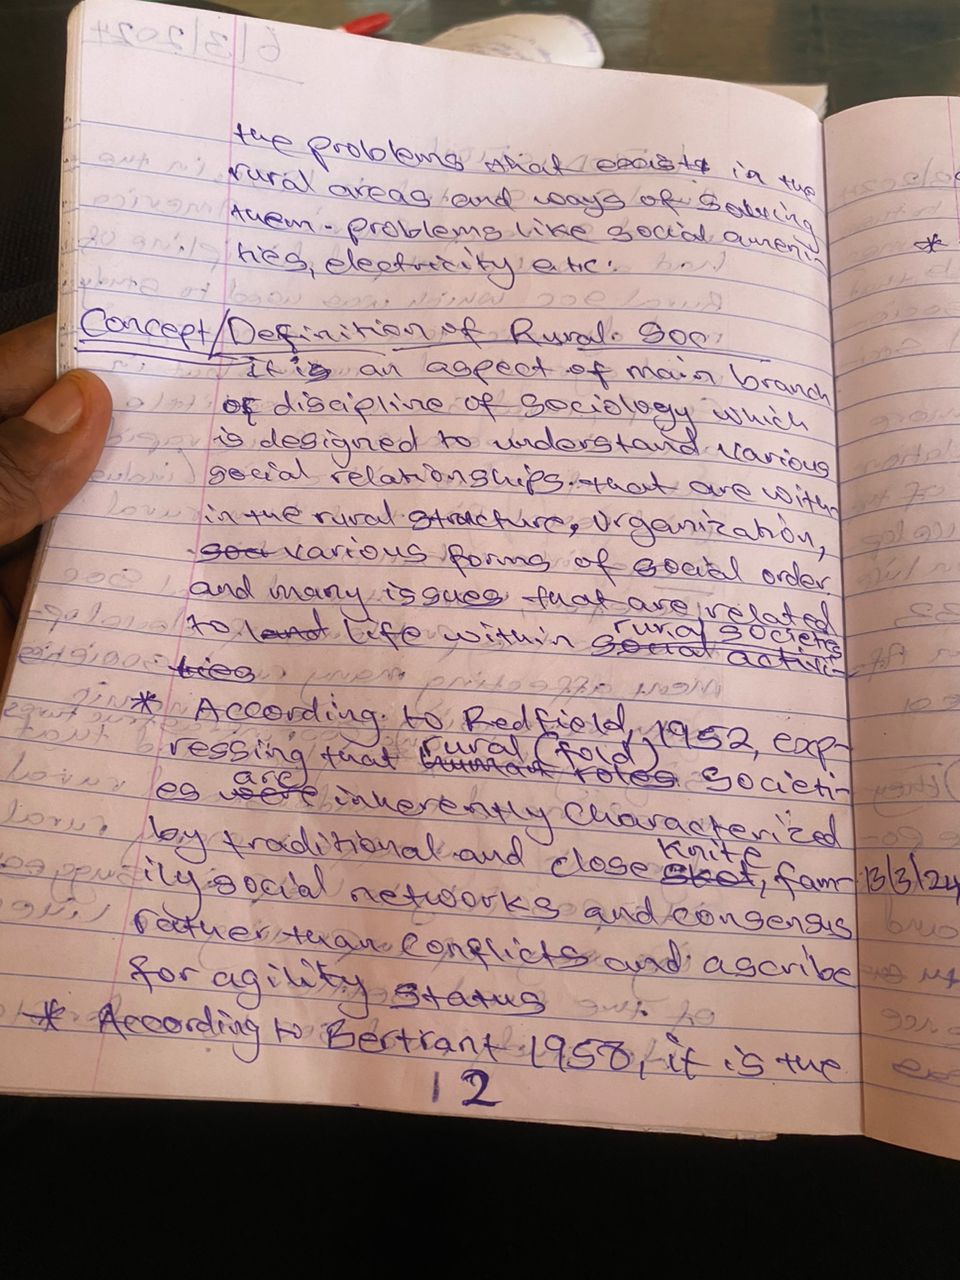 the problems that exists in the
rural areas and ways of solving
them - problems like social ameni-
ties, electricity etc.
Concept/Definition of Rural. Soc
It is an aspect of main branch
of discipline of sociology which
is designed to understand various
social relationships that are with-
in the rural structure, organization,
soci various forms of social order
and many issues that are related
to land life within rural societs
social activi-
ties
* According to Redfield, 1952, exp-
ressing that rural (fold) societi-
es are inherently characterized
by traditional and close knite, fam-
ily social networks and consensus
rather than conflicts and ascribe
for agility status
* According to Bertrant 1958, it is the
12
*
13/3/24